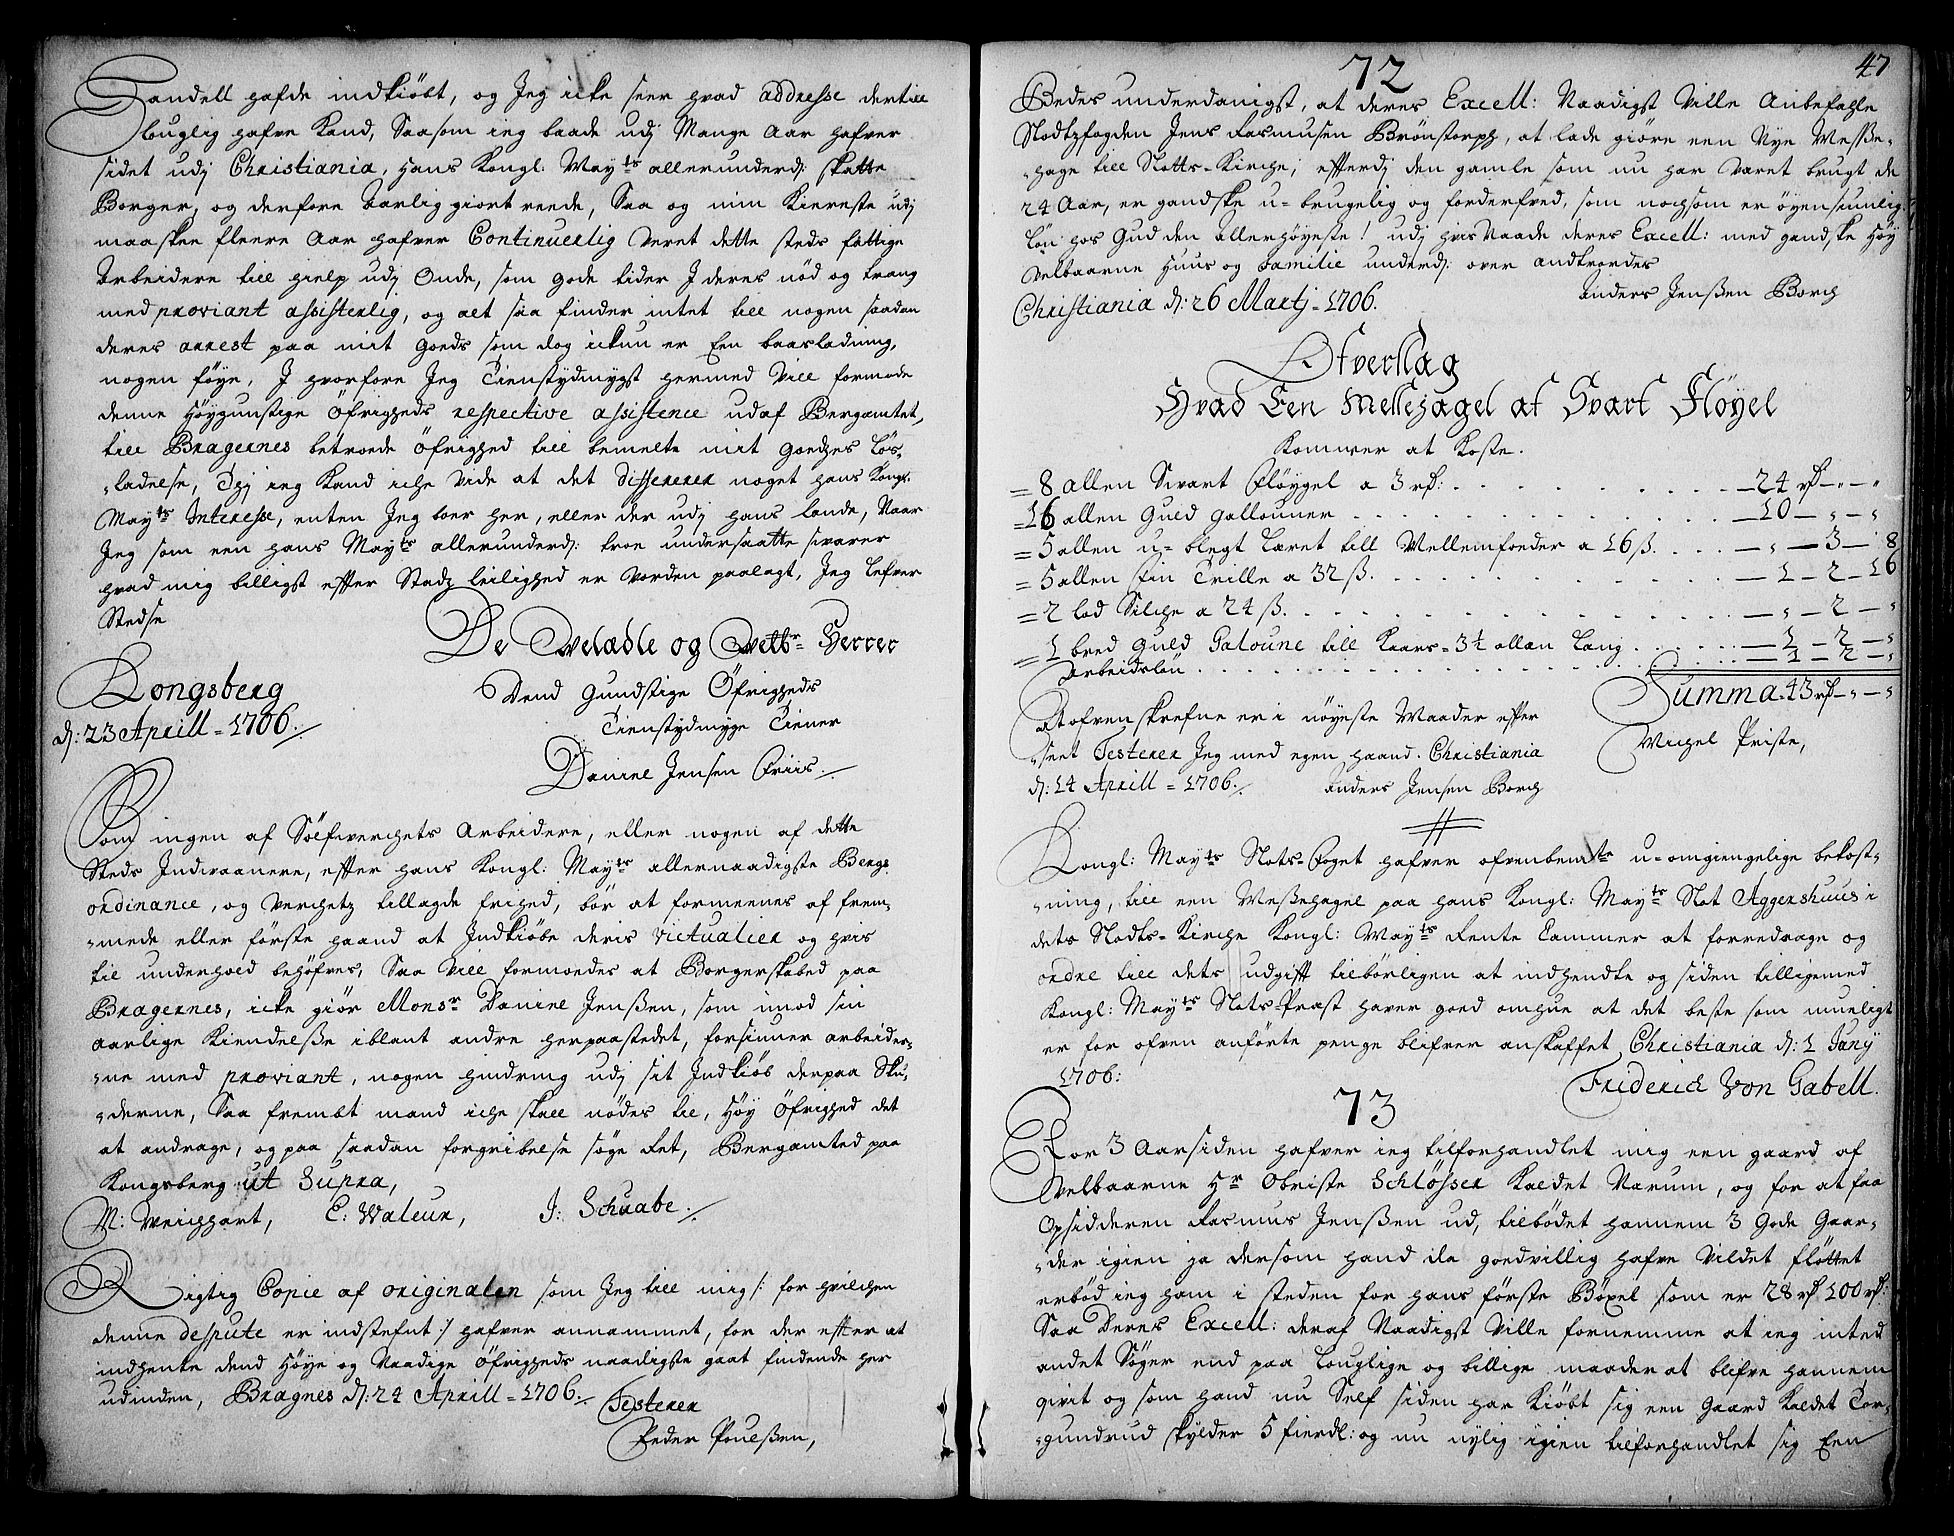 Handell hafde indkiöbt, og Jeg icke seer hvad addresse dertill
louglig hafve Kand, Saasom ieg baade udj Mange Aar hafver
sidet udj Christiania, hans Kongl: Mayts allerunderd: skatte
Borger, og derfore Aarlig giort reede, Saa og min Kiereste udj
maaskee fleere Aar hafver Continuerlig veret dette steds fattige
Arbeidere till hielp udj Onde, som gode tider J deres nöd og trang
med proviant assisterlig, og alt saa finder intet till nogen saadan
deres arrest paa mit Goeds som dog ickun er Een baarladning,
nogen föye, J hvorfore Jeg Tienstydmygst hermed vill formode
denne Höygunstige Öfrigheds respective assistence udaf Bergamtet,
till Bragernes betroede Öfrighed till bemelte mit Goedzes Lös-
-ladelse, Thj ieg Kand iche vide at det differerer noget hans Kongl.
Mayts Interesse, enten Jeg boer her, eller der udj hans lande, Naar
Jeg som een hans Mayts allerunderd: troe undersaatte svarer
hvad mig billigst effter Stadz leilighed er vorden paalagt, Jeg lefver
Stedse
De Velædle og Vettbr Herrer
Kongsberg
d: 23 Aprill = 1706.
Dend Gundstige Öfrigheds
Tienstydmyge Tiener
Daniel Jensen Friis.
Som ingen af Sölfverchets Arbeidere, eller nogen af dette
Steds Indvaanere, effter hans Kongl: Mayts allernaadigste Bergs
ordinance, og Verchetz tillagde frihed, bör at formeenes af frem-
-mede eller förste haand at Indkiöbe deris victualier og hvis
til underhold behöfves, Saa vill formoedes at Borgerskabed paa
Bragernes, icke giör Monsr Daniel Jenßen, som imod sin
aarlige Kiendelße iblant andre herpaastedet, forsiuner arbeider-
-ne med proviant, nogen hindring udj sit Indkiöb derpaa Stæ-
-derne, Saa frembt mand iche skall nödes til, Höy Öfrighed det
at andrage, og paa saadan forgribelse söge Ret, Bergamted paa
Kongsberg ut Supra,
M: Weichhart, C: Valeur, J: Schuabe.
Rigtig Copie af originalen som Jeg till mig /: for hvilchen
denne despute er indstefnt :/ hafver annammet, for der effter at
indhente dend Höye og Naadige Öfrigheds naadigste gaat findende her
udinden, Bragnes d: 24 Aprill = 1706.
Testerer
Peder Poulßen,
47
72
Bedes underdanigst, at deres Excell: Naadigst Ville Anbefahle
Slodtzfogden Jens Rasmusen Brönstorph, at lade giöre een Nye Messe-
-hage till Slotts-Kirche; efterdj den gamle som nu har været brugt de
24 Aar, er gandske u-brugelig og forderfved, som nochsom er öyensiunlig
Lön hos Gud den Allerhöyeste! udj hvis Naade deres Excell: med gandske Höy
velbaarne Huus og Familie underd: over andtvordes
Christiania d: 26 Martj = 1706.
Anders Jenßen Borch
Ofverslag
Hvad Een Messehagel af Svart Flöyel
Kommer at Koste.
= 8 allen Svart Flöygel a 3 rd: . . . — 24 rd — „ — „
= 16 allen Guld gallouner . . . — 10 — „ — „
= 5 allen u-blegt Læret till Mellemfoeder a 16 ß. . . . — „ — 3 — 8
= 5 allen fin Trille a 32 ß. . . . — 1 — 2 — 16
= 2 lod Silche a 24 ß. . . . — „ — 2 — „
= 1 bred Guld Galoune till Kaars = 3½ allen Lang . . . — 3 — 2 — „
Arbeidslön . . . — 3 — 2 — „
Summa 43 rd — „ — „
At ofvenskrefne er i nöyeste Maader effter
-seet Testerer Jeg med egen haand. Christiania
d: 14 Aprill = 1706.
Anders Jensen Borch
Michel Friste,
Kongl: Mayts Slots-Foget hafver ofvenbemte u-omgiengelige bekost-
-ning, till een Meßehagel paa hans Kongl: Mayts Slot Aggershuus i
dets Slodts-Kirche Kongl: Mayts Rente Cammer at forredrage og
ordre till dets udgifft tilbörligen at indhendte og siden tilligemed
Kongl: Mayts Slots-Præst haver goed omhue at det beste som mueligt
er for ofven anförte penge blifver anskaffet Christiania d: 1 Junij
1706:
Friderich von Gabell.
73
For 3 Aarsiden hafver ieg tilforhandlet mig een gaard af
Velbaarne Hr Obriste Schlösser Kaldet Narum, og for at faa
Opsidderen Rasmus Jenßen ud, tilbödet hannem 3 Gode Gaar-
-der igien ja dersom hand da goedvillig hafve vildet flöttet
erböd ieg ham i steden for hans förste Böxel som er 28 rd 100 rd:
Saa Deres Excell: deraf Naadigst Ville fornemme at ieg inted
andet Söger end paa Louglige og billige maader at blifve hannem
qvit og som hand nu Self siden har Kiöbt sig een Gaard Kaldet Tor-
-gundrud skylder 5 fierd: og nu nylig igien tilforhandlet sig Een